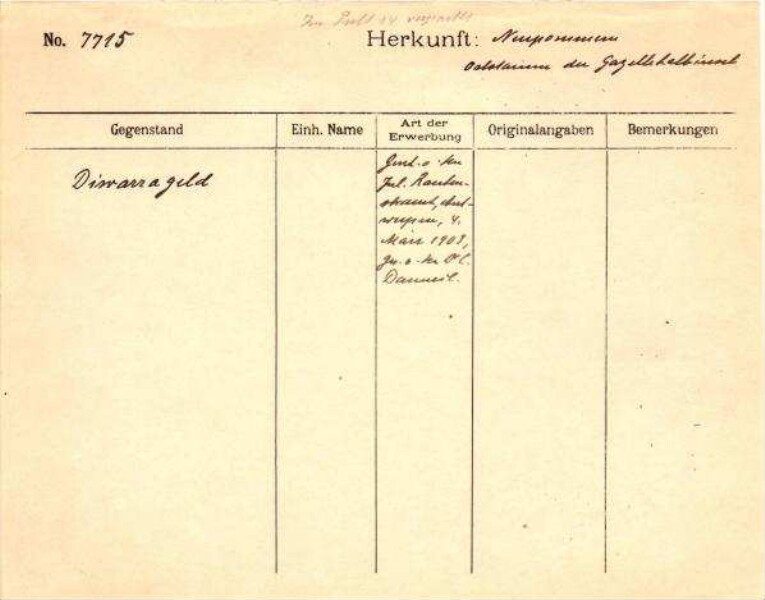 No. 7715
Herkunft: Neupommern
der Gazellehalbinsel
Gegenstand
Einh. Name
Art der
Erwerbung
Originalangaben
Bemerkungen
Diwarrageld
Jul. Rauten-
strauch, Ant-
werpen, 4.
März 1903,